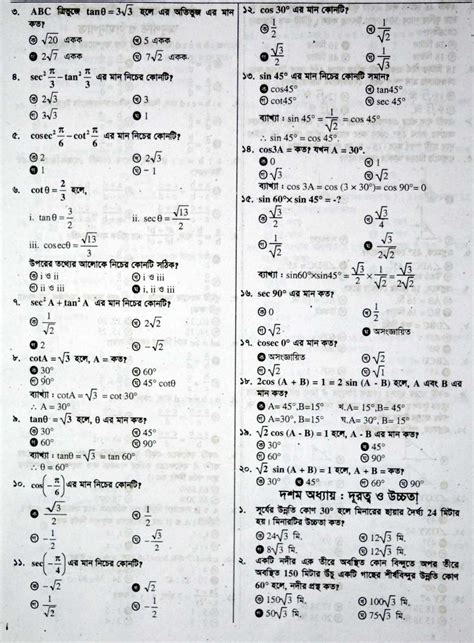 ৩. ABC ত্রিভুজে tanθ = 3√3 হলে এর অতিভুজ এর মান কত?
√20 একক 5 একক
2√7 একক 7√2 একক
৪. sec² π/3 − tan² π/3 এর মান নিচের কোনটি?
2√3 3
√3 1
৫. cosec² π/6 − cot² π/6 এর মান নিচের কোনটি?
2 2√3
1 − 1
৬. cotθ = 2/3 হলে,
i. tanθ = 3/2 ii. secθ = √13/2
iii. cosecθ = √13/3
উপরের তথ্যের আলোকে নিচের কোনটি সঠিক?
i ও ii i ও iii
ii ও iii i, ii ও iii
৭. sec² A + tan² A এর মান নিচের কোনটি?
1/√2 2√2
2 − √2
৮. cotA = √3 হলে, A = কত?
30° 60°
90° 45° cotθ
ব্যাখ্যা : cotA = √3 = cot 30°
∴ A = 30°
৯. tanθ = √3 হলে, θ এর মান কত?
30° 45°
60° 90°
ব্যাখ্যা : tanθ = √3 = tan 60°
∴ θ = 60°
১০. cos(−π/6) এর মান নিচের কোনটি?
√3/2 1/2
1/√2 − 1/2
১১. sec(−π/4) এর মান নিচের কোনটি?
− √2 √2
1/√2 − 1/√2
১২. cos 30° এর মান কোনটি?
1/2 1/√2
√3/2 √3
১৩. sin 45° এর মান নিচের কোনটি সমান?
cos45° tan45°
cot45° sec 45°
ব্যাখ্যা : sin 45° = 1/√2 = cos 45°
∴ sin 45° = cos 45°
১৪. cos3A = কত? যখন A = 30°.
0 1
√3 1/√2
ব্যাখ্যা : cos 3A = cos (3 × 30°) = cos 90° = 0
১৫. sin 60°× sin 45° = -?
√3/2 √3/4
1/√2 √3/2√2
ব্যাখ্যা : sin60°×sin45° = √3/2 × 1/√2 = √3/2√2
১৬. sec 90° এর মান কত?
0 1/2
√2 অসংজ্ঞায়িত
১৭. cosec 0° এর মান কত?
অসংজ্ঞায়িত √2
√1
১৮. 2cos (A + B) = 1 = 2 sin (A - B) হলে, A এবং B এর মান কত?
A= 45°,B=15° ঘ.A= 15°,B= 45°
A= 30°,B=15° ঘ.A= 30°, B= 15°
১৯. √2 cos (A - B) = 1 হলে, A - B এর মান কত?
30° 45°
60° 90°
২০. √2 sin (A + B) = 1 হলে, A + B = কত?
30° 45° 60° 90°
দশম অধ্যায় : দূরত্ব ও উচ্চতা
১. সূর্যের উন্নতি কোণ 30° হলে মিনারের ছায়ার দৈর্ঘ্য 24 মিটার হয়। মিনারটির উচ্চতা কত?
24√3 মি. 12√3 মি.
8√3 মি. 12√3 মি.
২. একটি নদীর এক তীরে অবস্থিত কোন বিন্দুতে অপর তীরে অবস্থিত 150 মিটার উঁচু একটি গাছের শীর্ষবিন্দুর উন্নতি কোণ 60° হলে, নদীর প্রস্থ কত?
150√3 মি. 100√3 মি.
50√3 মি. 75√3 মি.